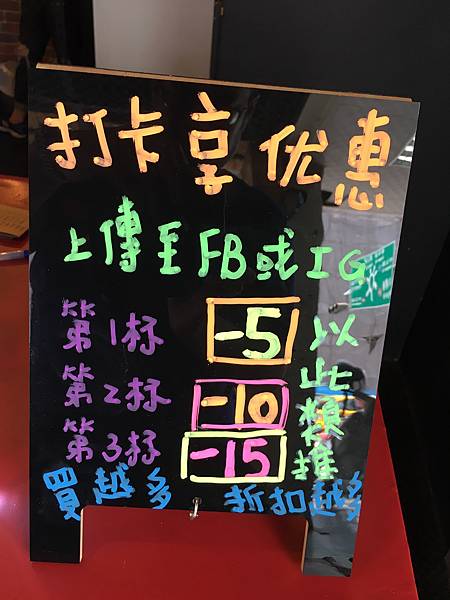 打卡享优惠
上傳至FB或IG
第1杯 -5
第2杯 -10
第3杯 -15
以此類推
買越多 折扣越多